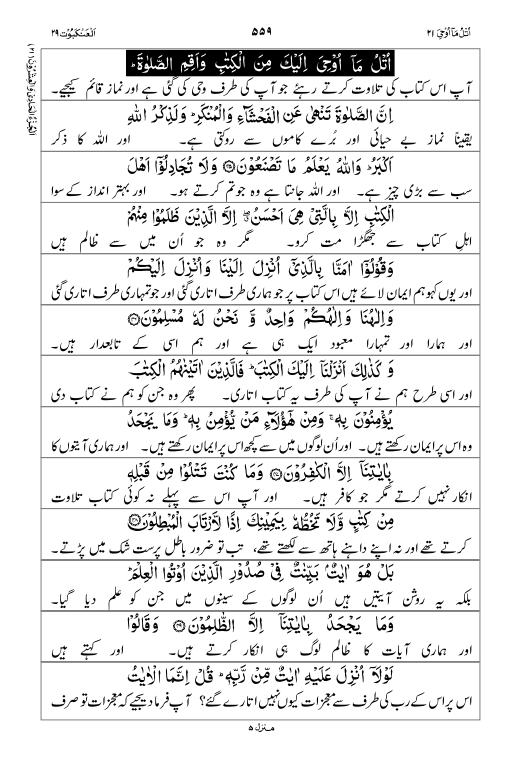 اُتْلُ مَاۤ اُوْحِیَ ۲۱ ۵۵۹ اَلْعَنْكَبُوْت ۲۹
اُتْلُ مَاۤ اُوْحِیَ اِلَیْكَ مِنَ الْكِتٰبِ وَاَقِمِ الصَّلٰوةَ ؕ
آپ اس کتاب کی تلاوت کرتے رہئے جو آپ کی طرف وحی کی گئی ہے اور نماز قائم کیجیے۔
اِنَّ الصَّلٰوةَ تَنْهٰی عَنِ الْفَحْشَآءِ وَالْمُنْكَرِ ؕ وَلَذِكْرُ اللّٰهِ
یقیناً نماز بے حیائی اور بُرے کاموں سے روکتی ہے۔ اور اللہ کا ذکر
اَكْبَرُ ؕ وَاللّٰهُ یَعْلَمُ مَا تَصْنَعُوْنَ ﴿۴۵﴾ وَلَا تُجَادِلُوْۤا اَهْلَ
سب سے بڑی چیز ہے۔ اور اللہ جانتا ہے وہ جو تم کرتے ہو۔ اور بہتر انداز کے سوا
الْكِتٰبِ اِلَّا بِالَّتِیْ هِیَ اَحْسَنُ ۖۗ اِلَّا الَّذِیْنَ ظَلَمُوْا مِنْهُمْ
اہلِ کتاب سے جھگڑا مت کرو۔ مگر وہ جو اُن میں سے ظالم ہیں
وَقُوْلُوْۤا اٰمَنَّا بِالَّذِیْۤ اُنْزِلَ اِلَیْنَا وَاُنْزِلَ اِلَیْكُمْ
اور یوں کہو ہم ایمان لائے ہیں اس کتاب پر جو ہماری طرف اتاری گئی اور جو تمہاری طرف اتاری گئی
وَاِلٰهُنَا وَاِلٰهُكُمْ وَاحِدٌ وَّ نَحْنُ لَهٗ مُسْلِمُوْنَ ﴿۴۶﴾
اور ہمارا اور تمہارا معبود ایک ہی ہے اور ہم اسی کے تابعدار ہیں۔
وَ كَذٰلِكَ اَنْزَلْنَاۤ اِلَیْكَ الْكِتٰبَ ؕ فَالَّذِیْنَ اٰتَیْنٰهُمُ الْكِتٰبَ
اور اسی طرح ہم نے آپ کی طرف یہ کتاب اتاری۔ پھر وہ جن کو ہم نے کتاب دی
یُؤْمِنُوْنَ بِهٖ ۚ وَمِنْ هٰۤؤُلَآءِ مَنْ یُّؤْمِنُ بِهٖ ؕ وَمَا یَجْحَدُ
وہ اس پر ایمان رکھتے ہیں۔ اور اُن لوگوں میں سے کچھ اس پر ایمان رکھتے ہیں۔ اور ہماری آیتوں کا
بِاٰیٰتِنَاۤ اِلَّا الْكٰفِرُوْنَ ﴿۴۷﴾ وَمَا كُنْتَ تَتْلُوْا مِنْ قَبْلِهٖ
انکار نہیں کرتے مگر جو کافر ہیں۔ اور آپ اس سے پہلے نہ کوئی کتاب تلاوت
مِنْ كِتٰبٍ وَّلَا تَخُطُّهٗ بِیَمِیْنِكَ اِذًا لَّارْتَابَ الْمُبْطِلُوْنَ ﴿۴۸﴾
کرتے تھے اور نہ اپنے داہنے ہاتھ سے لکھتے تھے، تب تو ضرور باطل پرست شک میں پڑتے۔
بَلْ هُوَ اٰیٰتٌۢ بَیِّنٰتٌ فِیْ صُدُوْرِ الَّذِیْنَ اُوْتُوا الْعِلْمَ ؕ
بلکہ یہ روشن آیتیں ہیں اُن لوگوں کے سینوں میں جن کو علم دیا گیا۔
وَمَا یَجْحَدُ بِاٰیٰتِنَاۤ اِلَّا الظّٰلِمُوْنَ ﴿۴۹﴾ وَقَالُوْا
اور ہماری آیات کا ظالم لوگ ہی انکار کرتے ہیں۔ اور کہتے ہیں
لَوْلَاۤ اُنْزِلَ عَلَیْهِ اٰیٰتٌ مِّنْ رَّبِّهٖ ؕ قُلْ اِنَّمَا الْاٰیٰتُ
اس پر اس کے رب کی طرف سے معجزات کیوں نہیں اتارے گئے؟ آپ فرما دیجیے کہ معجزات تو صرف
منزل ۵